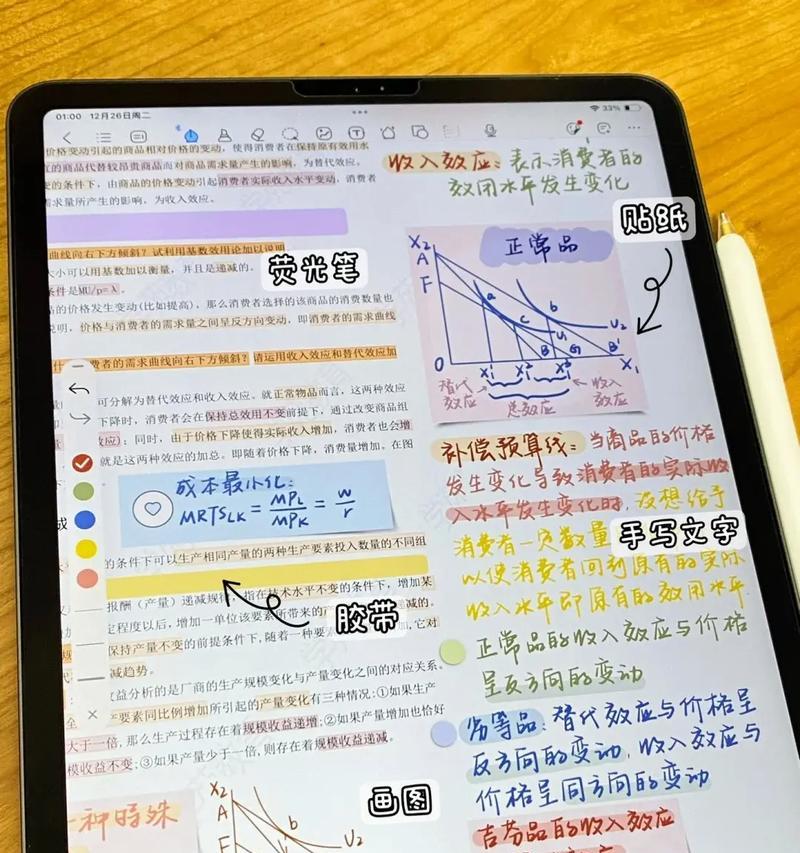 01:00 12月26日周二
33%
价格变动引起的商品相对价格的变动，使得消费者在保持原有效用水
的商品代替较昂贵商品而对商品需求量产生的影响，为替代效应。
的条件下，由商品的价格变动引起消费者实际收入水平变动，消费者
需求量所产生的影响，为收入效应。
曲线向右下方倾斜？试利用基数效用论加以说明
大小可以用基数加以衡量，并且是递减的。
条件是MU/p=λ。
荧光笔
品的价格发生变动(比如提高)，那么消费者选择的该商品的消费数量也
说明，价格与消费者的需求量之间呈反方向变动，即消费者的需求曲线
费者的需求曲线向右下方倾斜？请运用收入效应和替代效应加
可分解为替代效应和收入效应。就正常物品而言，这两种效应
下降时，消费者会在保持总效用不变前提下，通过改变商品组
效应)；同时，由于价格下降使得实际收入增加，消费者也会增
就是这两种效应的加总。即随着价格下降，消费量增加。在图
成本最小化：
MRTSLK = MPL/MPK = w/r
的条件下可以生产相同产量的两种生产要素投入数量的不同组
报酬（产量）递减规律，指在技术水平不变的条件下，增加某
定程度以后，增加一单位该要素所带来的
减的。
胶带
保持产量不变的前提条件下，随着一种要
它对
减趋势。
益分析的是厂商的生产规模变化与产量变化之间的对应关系。
要素同比例增加所引起的产量变化有三种情况:①如果生产
大于一倍，那么生产过程存在着规模收益递增;②如果产量增加也恰好
模收益不变;③如果产量少于一倍，则存在着规模收益递减。
一种特殊
画图
X2
A
b
U2
收入效应：表示消费者的
效用水平发生变化
贴纸
正常品
X2
A
F
a
c
b
U1
U2
B
G
B'
0
X1' X1" X1‴
X1
替代
效应
总效应
收入
效应
补偿预算线：当商品的价格
发生变化导致消费者的实际收
入水平发生变化时，假想给予
消费者一定数量
手写文字
以使消费者回到原有的实际
收入水平即原有的效用水平
正常品的收入效应与价格
呈反方向的变动
劣等品：替代效应与价格呈
反方向的变动，收入效应与
价格呈同方向的变动
吉芬品的收入效应